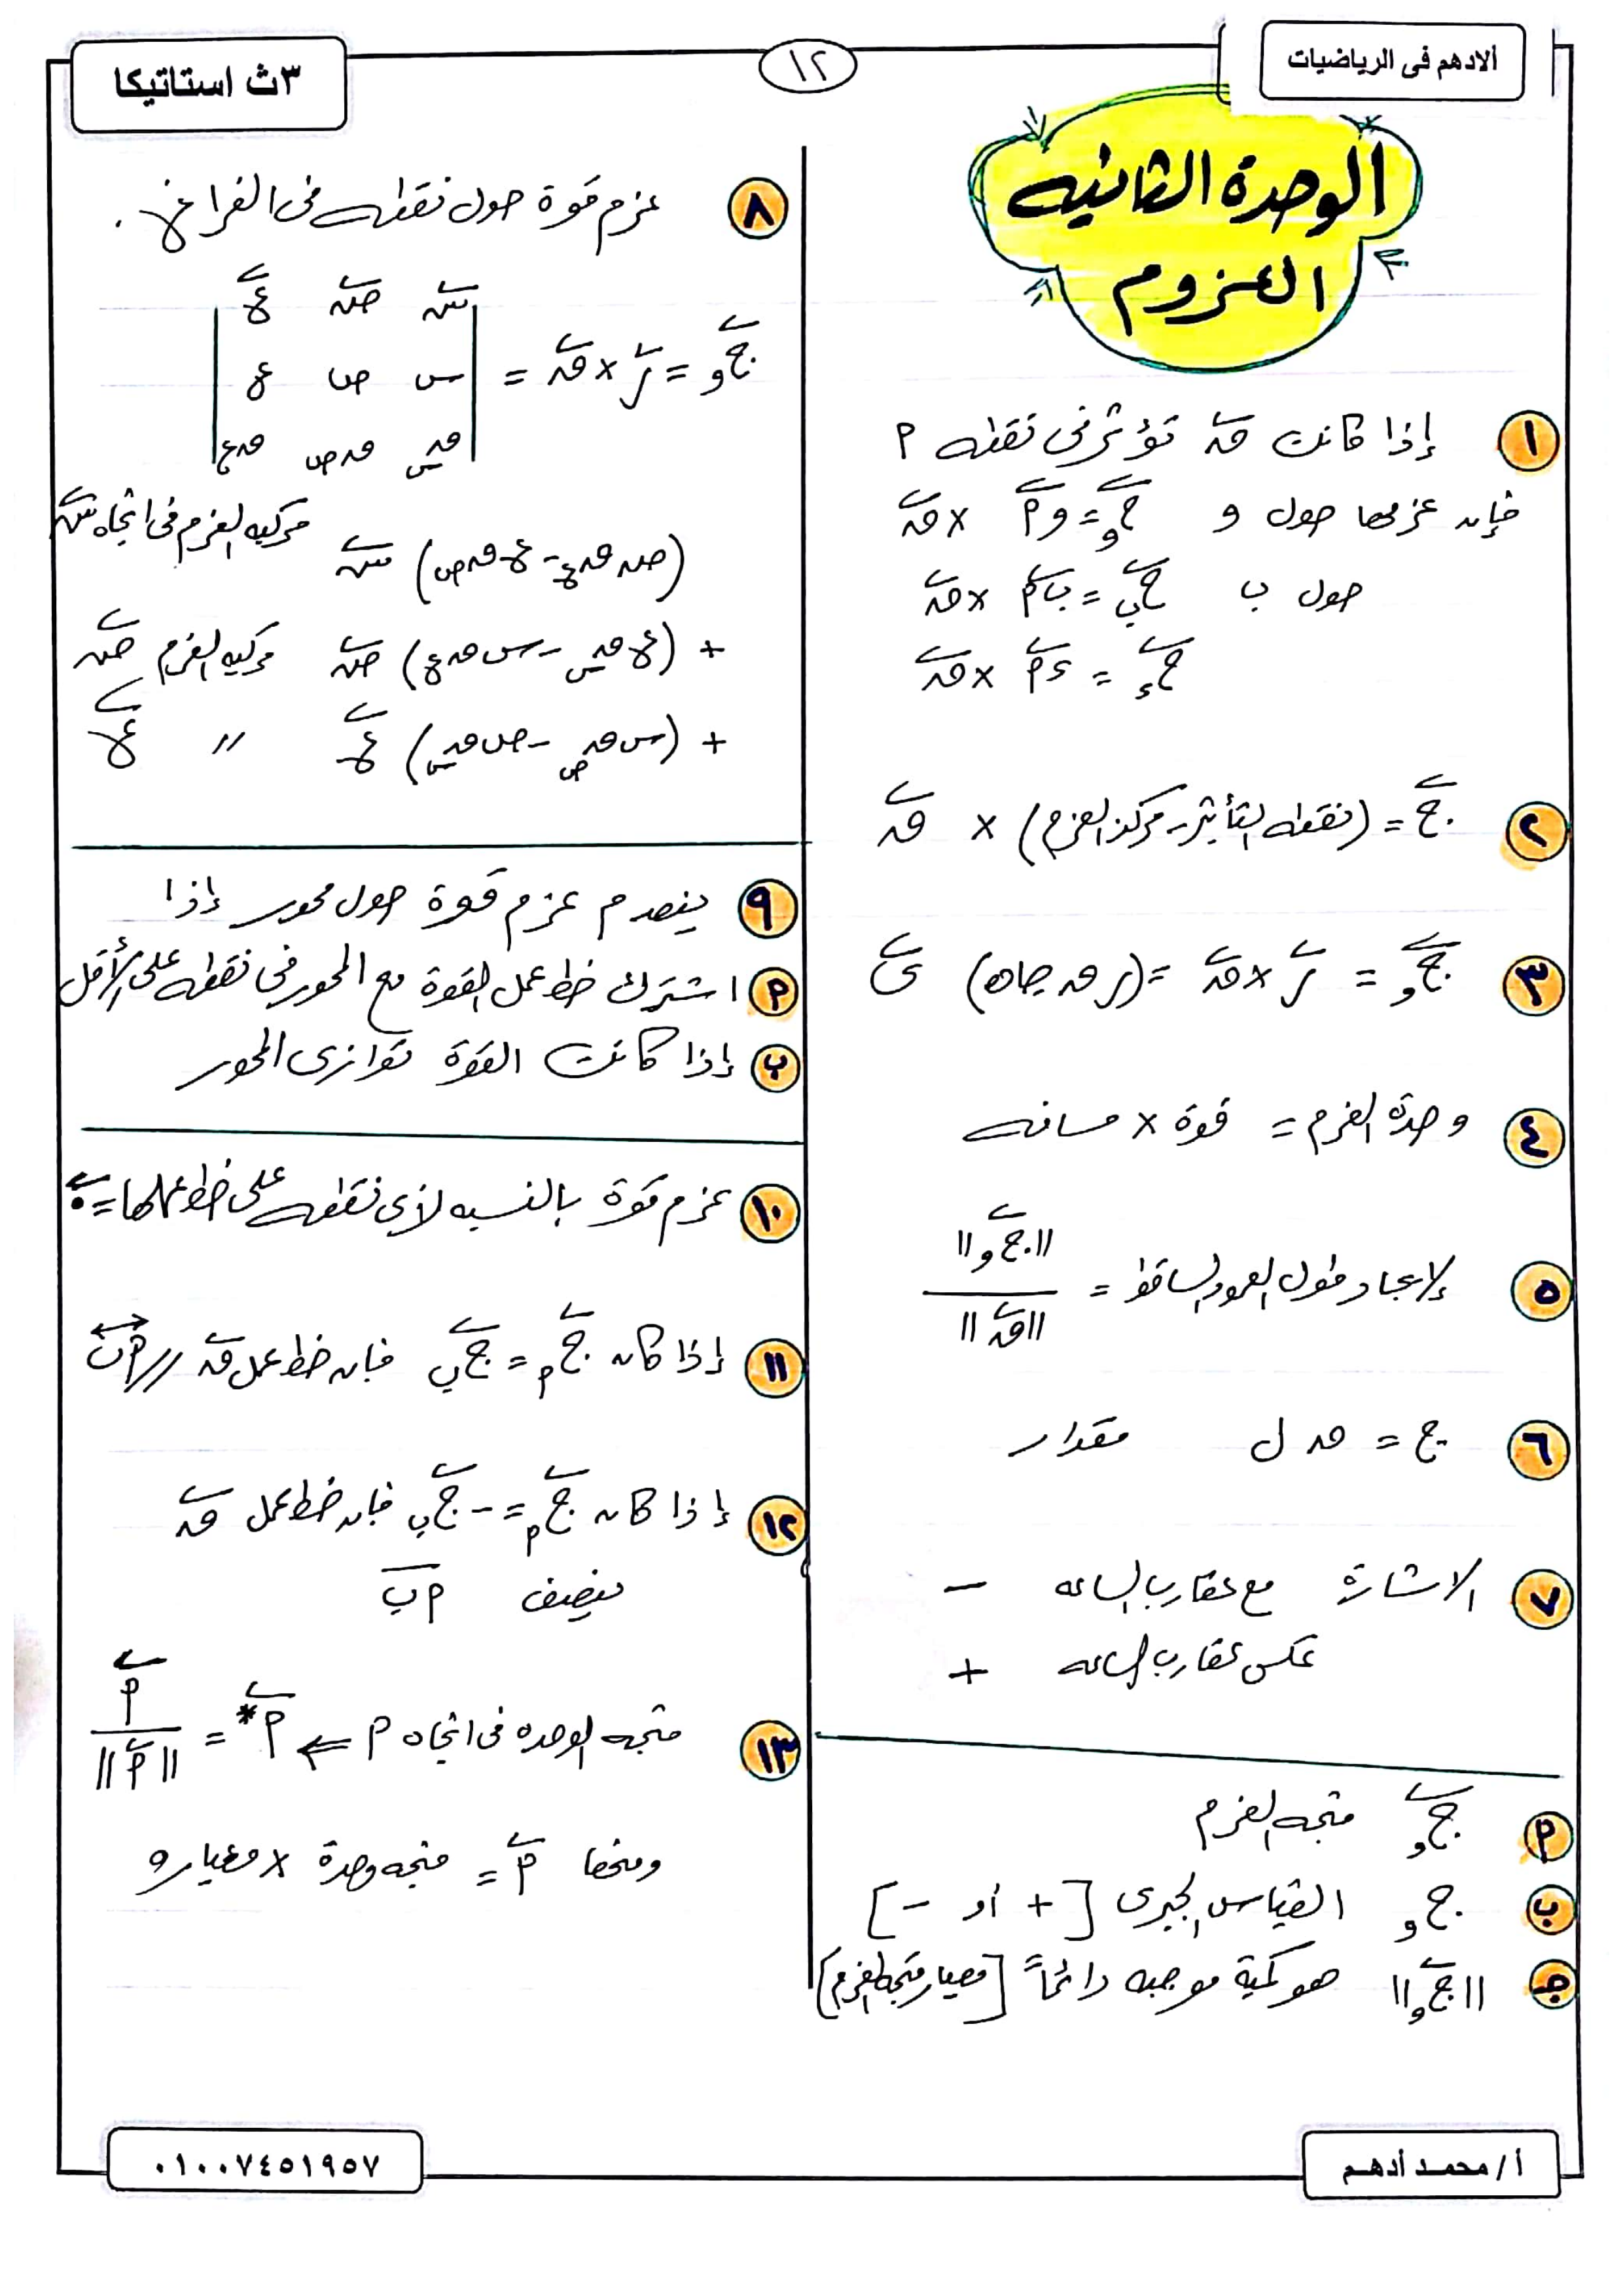 ألادهم فى الرياضيات
١٢
٣ث استاتيكا
الوحدة الثانيه
العزوم
١ إذا كانت ق⃖ تؤثر فى نقطه ٢
فإن عزمها حول و ج⃖و = و٢⃖ × ق⃖
حول ب ج⃖ب = ب٢⃖ × ق⃖
ج⃖ء = ء٢⃖ × ق⃖
٢ ج⃖ = (نقطه التأثير - مركز العزم) × ق⃖
٣ ج⃖و = ر⃖ × ق⃖ = (ر ق جا ه) ى⃖
٤ وحدة العزم = قوة × مسافه
٥ لإيجاد طول العمود الساقط = ||ج⃖و|| / ||ق⃖||
٦ ج = ق ل مقدار
٧ الاشارة مع عقارب الساعه −
عكس عقارب الساعه +
٢ ج⃖و متجه العزم
ب ج و القياس الجبرى [+ أو −]
ج ||ج⃖و|| هو كمية موجبه دائماً [معيار متجه العزم]
٨ عزم قوة حول نقطه فى الفراغ.
س⃖ ص⃖ ع⃖
ج⃖و = ر⃖ × ق⃖ = | س ص ع |
قس قص قع
مركبه العزم فى اتجاه س⃖
(ص قع − ع قص) س⃖
+ (ع قس − س قع) ص⃖ مركبه العزم ص⃖
+ (س قص − ص قس) ع⃖ // ع⃖
٩ ينعدم عزم قوة حول محور إذا
٢ اشترك خط عمل القوة مع المحور فى نقطه على الأقل
ب إذا كانت القوة توازى المحور
١٠ عزم قوة بالنسبه لأى نقطه على خط عملها = ٠⃖
١١ إذا كان ج⃖٢ = ج⃖ب فإن خط عمل ق⃖ // ٢ب
١٢ إذا كان ج⃖٢ = − ج⃖ب فإن خط عمل ق⃖
ينصف ٢ب
١٣ متجه الوحده فى اتجاه ٢ ⇐ ٢⃖* = ٢⃖ / ||٢⃖||
ومنها ٢⃖ = متجه وحدة × معياره
أ/ محمـد أدهـم
٠١٠٠٧٤٥١٩٥٧